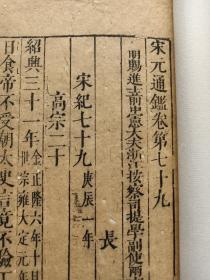 宋元通鑑卷第七十九
明賜進士前中憲大夫浙江按察司提學副使兩
長
宋紀七十九 庚辰一年
高宗二十
紹興三十一年 金正隆六年十月
世宗雍大定元年
日食帝不受朝太史言竟不驗